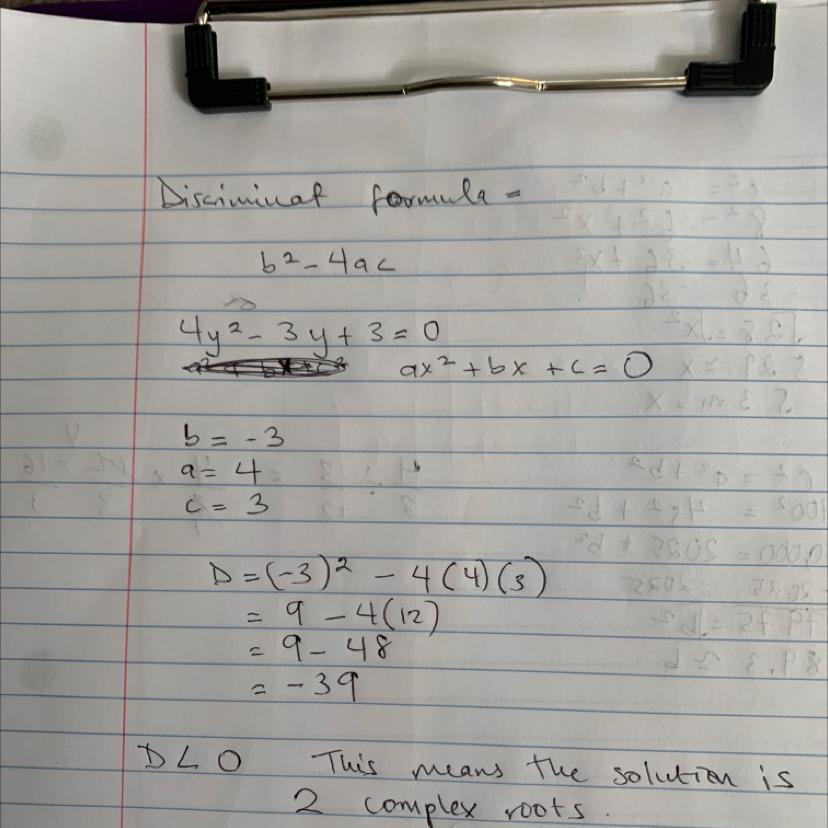 Discriminat formula =
b² - 4ac
4y² - 3y + 3 = 0
ax² + bx + c = 0
b = -3
a = 4
c = 3
D = (-3)² - 4(4)(3)
= 9 - 4(12)
= 9 - 48
= -39
D < 0 This means the solution is
2 complex roots.